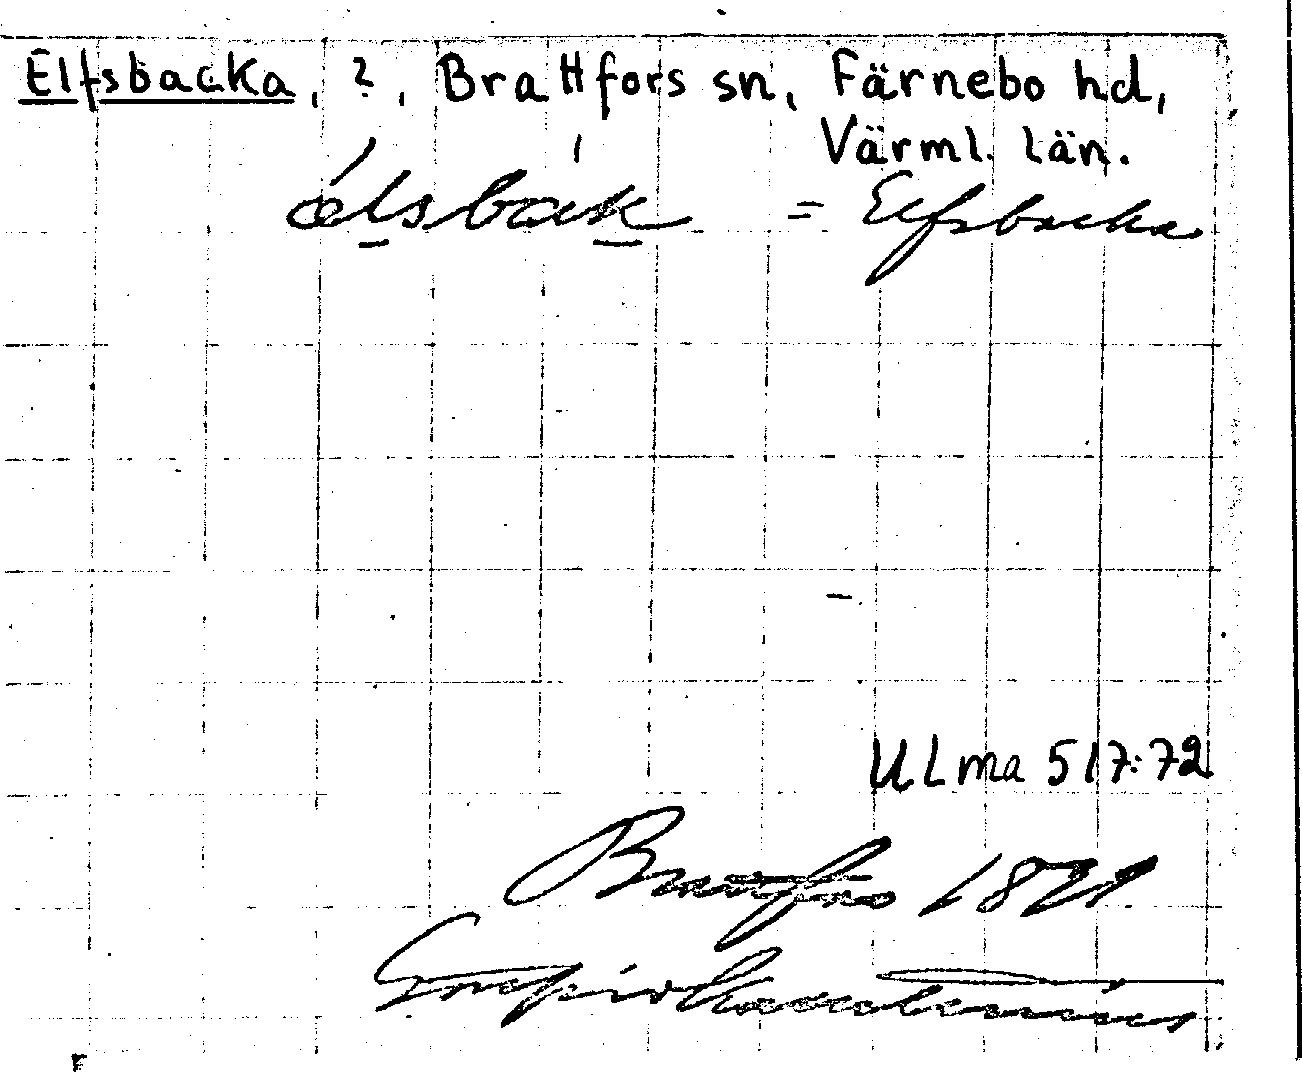 Elfsbacka, ?, Brattfors sn, Färnebo hd,
Värml. län.
élsbak = Elfsbacka
ULma 517:72
Brattfors 18